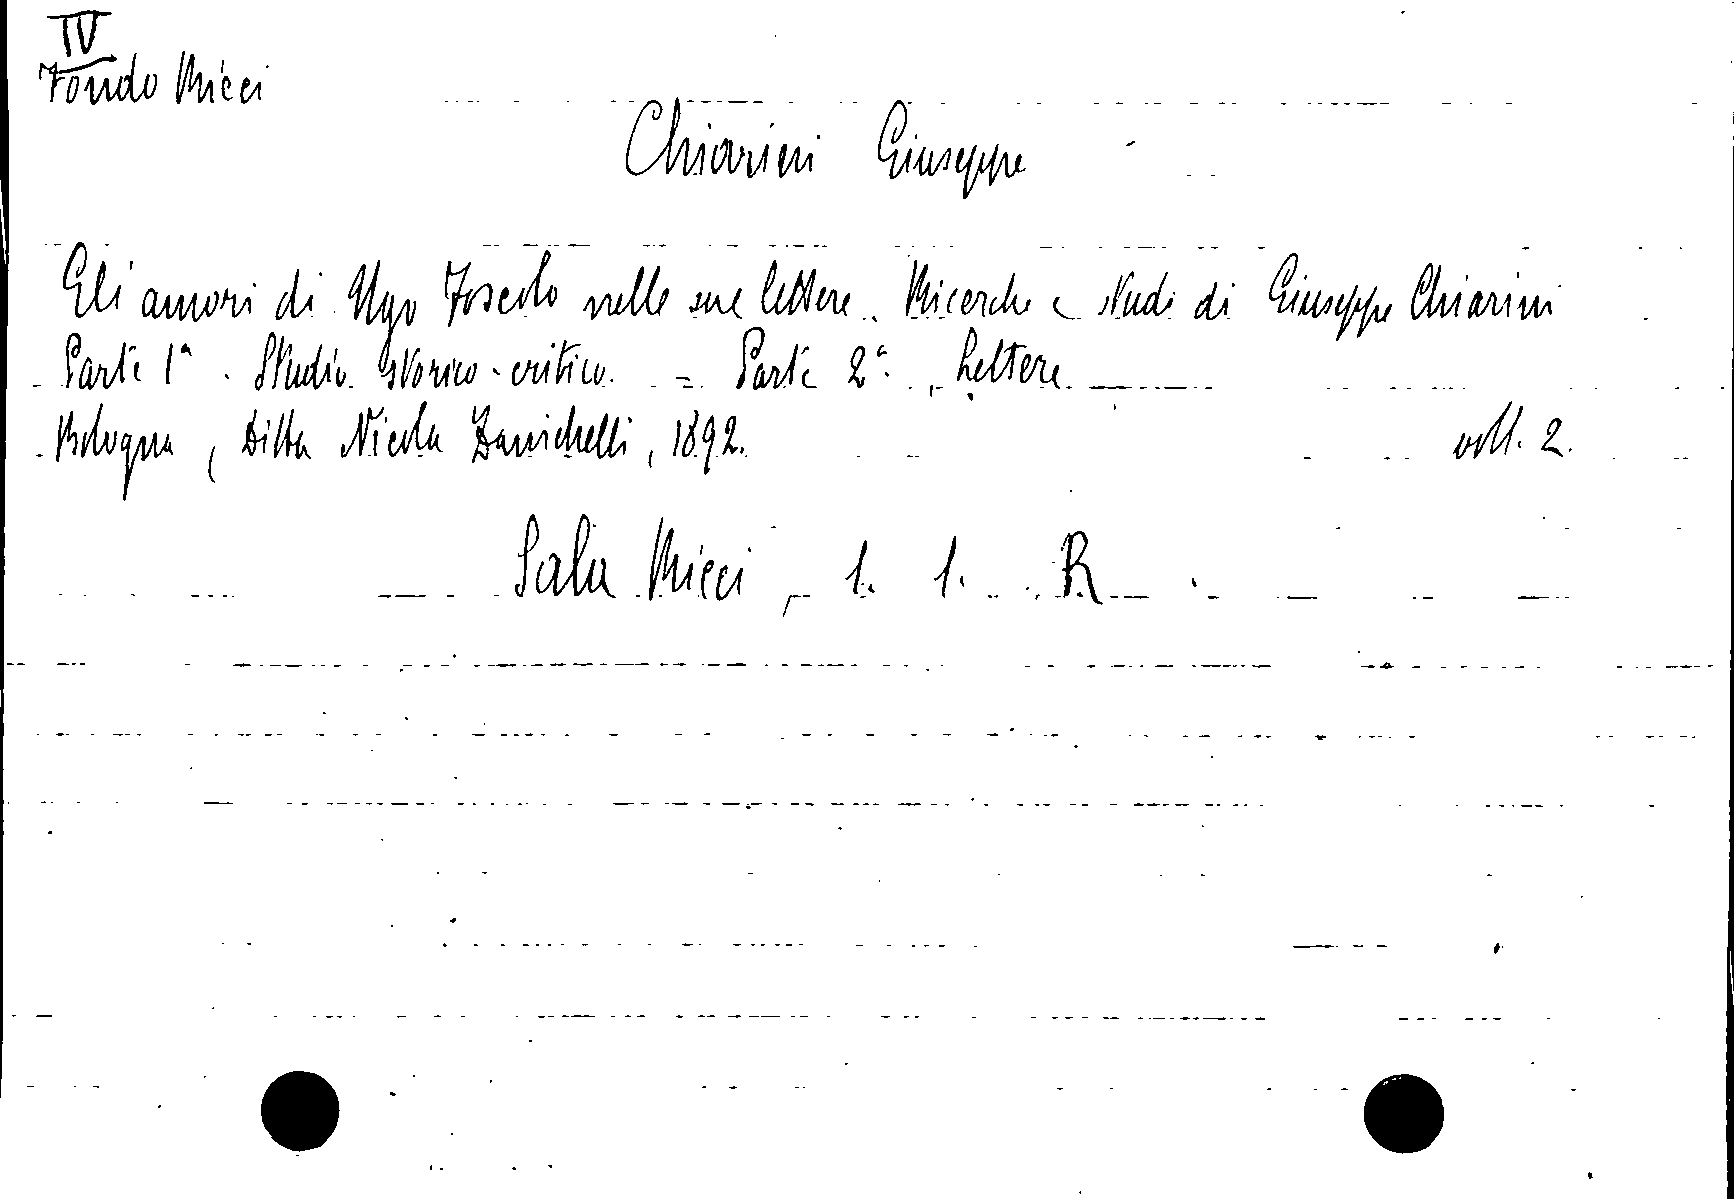 IV
Fondo Ricci
Chiarini Giuseppe
Gli amori di Ugo Foscolo nelle sue lettere. Ricerche e studi di Giuseppe Chiarini
Parte 1ª. Studio storico-critico. = Parte 2ª. Lettere
Bologna, Ditta Nicola Zanichelli, 1892. voll. 2.
Sala Ricci, 1. 1. R